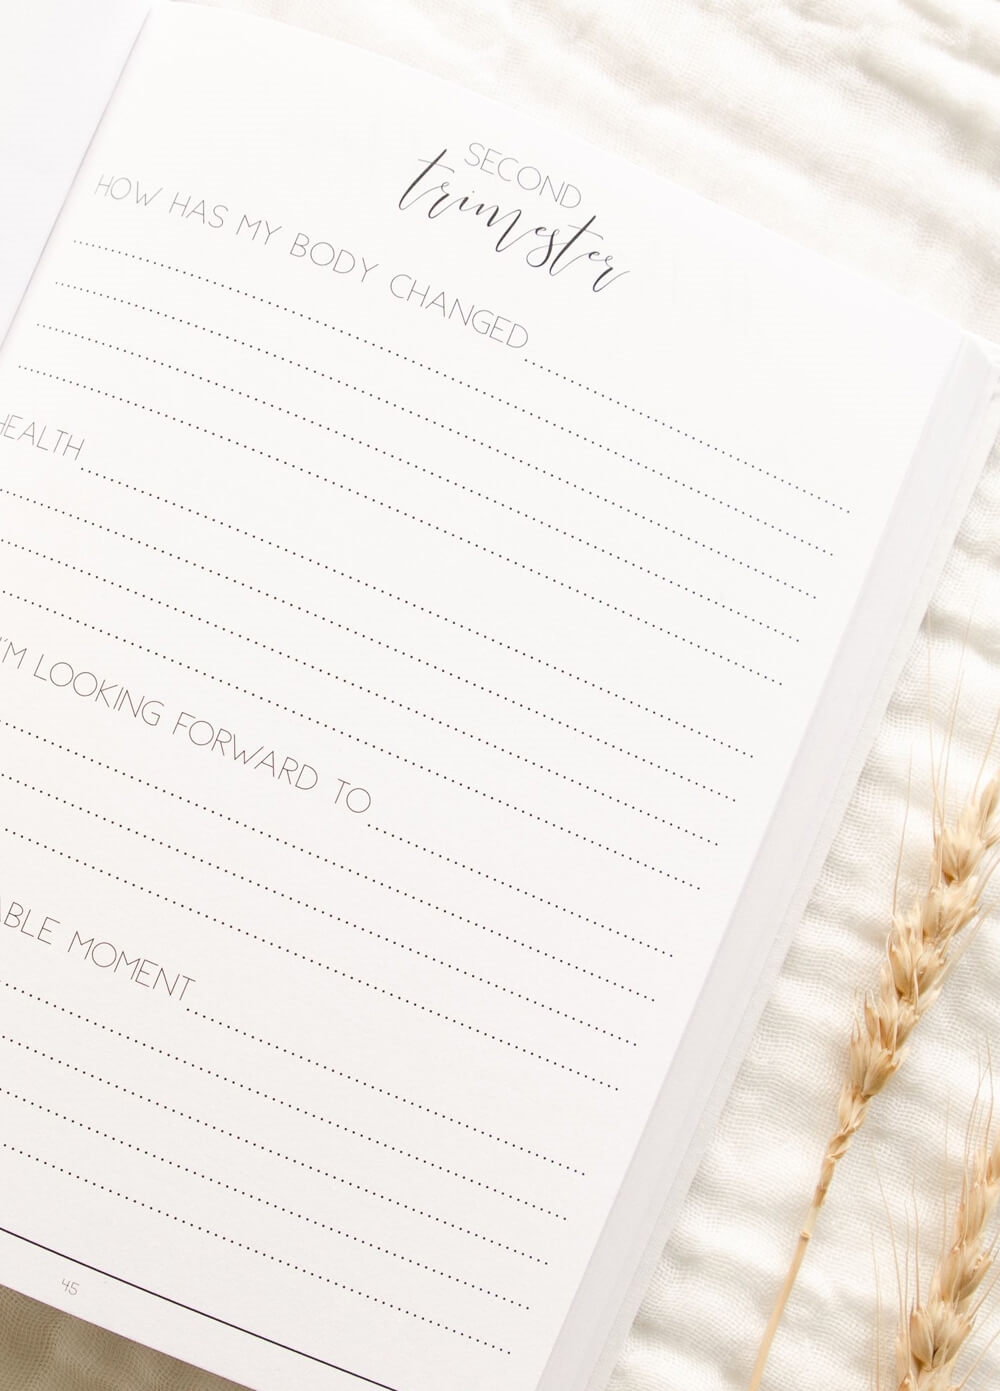 SECOND
trimester
HOW HAS MY BODY CHANGED
HEALTH
I'M LOOKING FORWARD TO
ABLE MOMENT
45